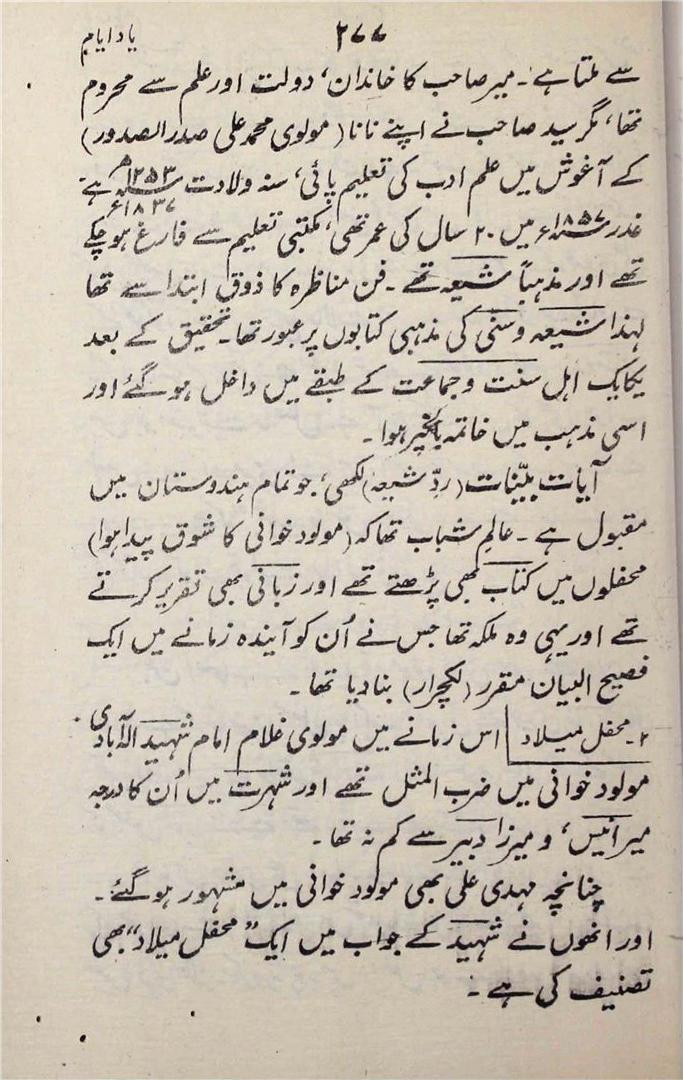 ۲۷۷
یاد ایام
سے ملتا ہے۔ میر صاحب کا خاندان، دولت اور علم سے محروم
تھا، مگر سید صاحب نے اپنے نانا (مولوی محمد علی صدر الصدور)
کے آغوش میں علم ادب کی تعلیم پائی، سنہ ولادت ۱۲۵۳ھ ہے
۱۸۳۷ء
غدر ۱۸۵۷ء میں ۲۰ سال کی عمر تھی، مکتبی تعلیم سے فارغ ہو چکے
تھے اور مذہباً شیعہ تھے۔ فن مناظرہ کا ذوق ابتدا سے تھا
لہذا شیعہ و سنی کی مذہبی کتابوں پر عبور تھا۔ تحقیق کے بعد
یکایک اہل سنت و جماعت کے طبقے میں داخل ہو گئے اور
اسی مذہب میں خاتمہ بالخیر ہوا۔
آیات بیّنات (ردِّ شیعہ) لکھی، جو تمام ہندوستان میں
مقبول ہے۔ عالم شباب تھا کہ (مولود خوانی کا شوق پیدا ہوا)
محفلوں میں کتاب بھی پڑھتے تھے اور زبانی بھی تقریر کرتے
تھے اور یہی وہ ملکہ تھا جس نے اُن کو آیندہ زمانے میں ایک
فصیح البیان مقرر (لکچرار) بنا دیا تھا۔
۲۔ محفل میلاد اس زمانے میں مولوی غلام امام شہید الہ آبادی
مولود خوانی میں ضرب المثل تھے اور شہرت میں اُن کا درجہ
میر انیس، و میرزا دبیر سے کم نہ تھا۔
چنانچہ مہدی علی بھی مولود خوانی میں مشہور ہو گئے۔
اور انھوں نے شہید کے جواب میں ایک ”محفل میلاد“ بھی
تصنیف کی ہے۔